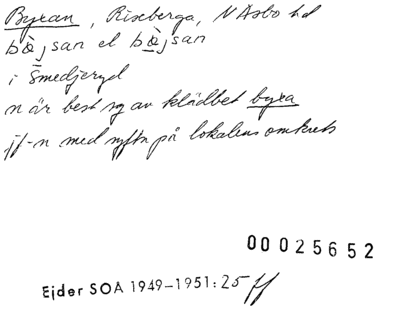 Byxan, Riseberga, N Åsbo hd
bøjsan el bøjsan
i Smedjeryd
n är best sg av klädbet byxa
jf-n med syftn på lokalens omkrets
00025652
Ejder SOA 1949–1951: 25 ff